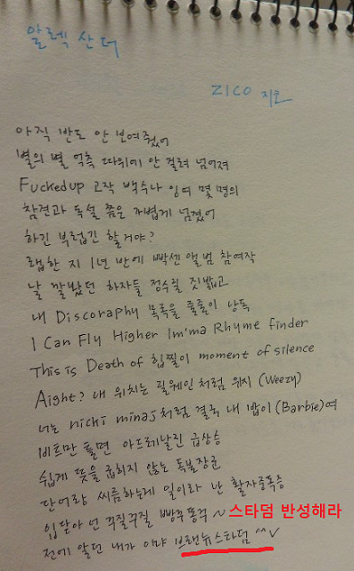 알렉산더
ZICO 지코
아직 반도 안 보여줬어
별의 별 억측 따위에 안 걸려 넘어져
Fucked up 고작 백수나 잉여 몇 명의
참견과 독설 쯤은 가볍게 넘겼어
하긴 부럽긴 할거야?
랩한 지 1년 반에 빡센 앨범 참여작
날 깔봤던 하자들 정수릴 짓밟고
내 Discoraphy 목록을 줄줄이 낭독
I Can Fly Higher Im'ma Rhyme finder
This is Death of 힙찔이 moment of silence
Aight? 내 위치는 릴웨인처럼 위지 (Weezy)
너는 nicki minaj처럼 결국 내 밥이 (Barbie)여
비트만 틀면 아드레날린 급상승
쉽게 뜻을 굽히지 않는 독불장군
단어랑 씨름하는게 일이라 난 활자중독증
입닫아 넌 꾸질꾸질 빵꾸똥꾸 ~ 스타덤 반성해라
전에 알던 내가 아냐 브랜뉴스타덤 ^^